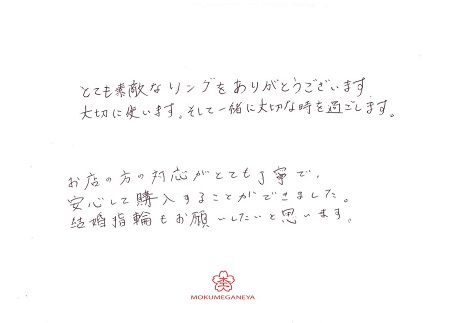 とても素敵なリングをありがとうございます
大切に使います。そして一緒に大切な時を過ごします。
お店の方の対応がとても丁寧で、
安心して購入することができました。
結婚指輪もお願いしたいと思います。
MOKUMEGANEYA